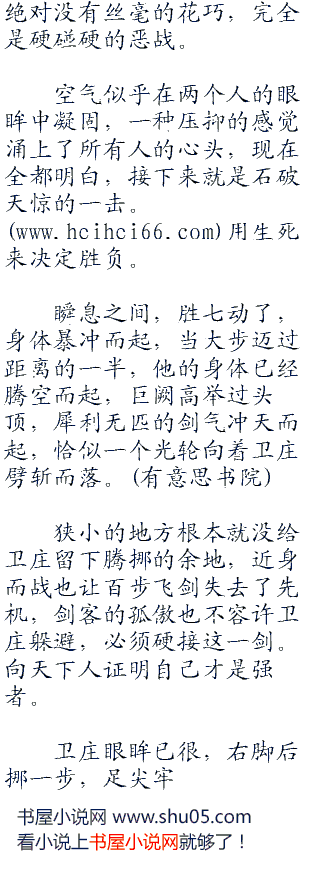 绝对没有丝毫的花巧，完全
是硬碰硬的恶战。
空气似乎在两个人的眼
眸中凝固，一种压抑的感觉
涌上了所有人的心头，现在
全都明白，接下来就是石破
天惊的一击。
(www.hcihci66.com)用生死
来决定胜负。
瞬息之间，胜七动了，
身体暴冲而起，当大步迈过
距离的一半，他的身体已经
腾空而起，巨阙高举过头
顶，犀利无匹的剑气冲天而
起，恰似一个光轮向着卫庄
劈斩而落。(有意思书院)
狭小的地方根本就没给
卫庄留下腾挪的余地，近身
而战也让百步飞剑失去了先
机，剑客的孤傲也不容许卫
庄躲避，必须硬接这一剑。
向天下人证明自己才是强
者。
卫庄眼眸已很，右脚后
挪一步，足尖牢
书屋小说网 www.shu05.com
看小说上书屋小说网就够了！